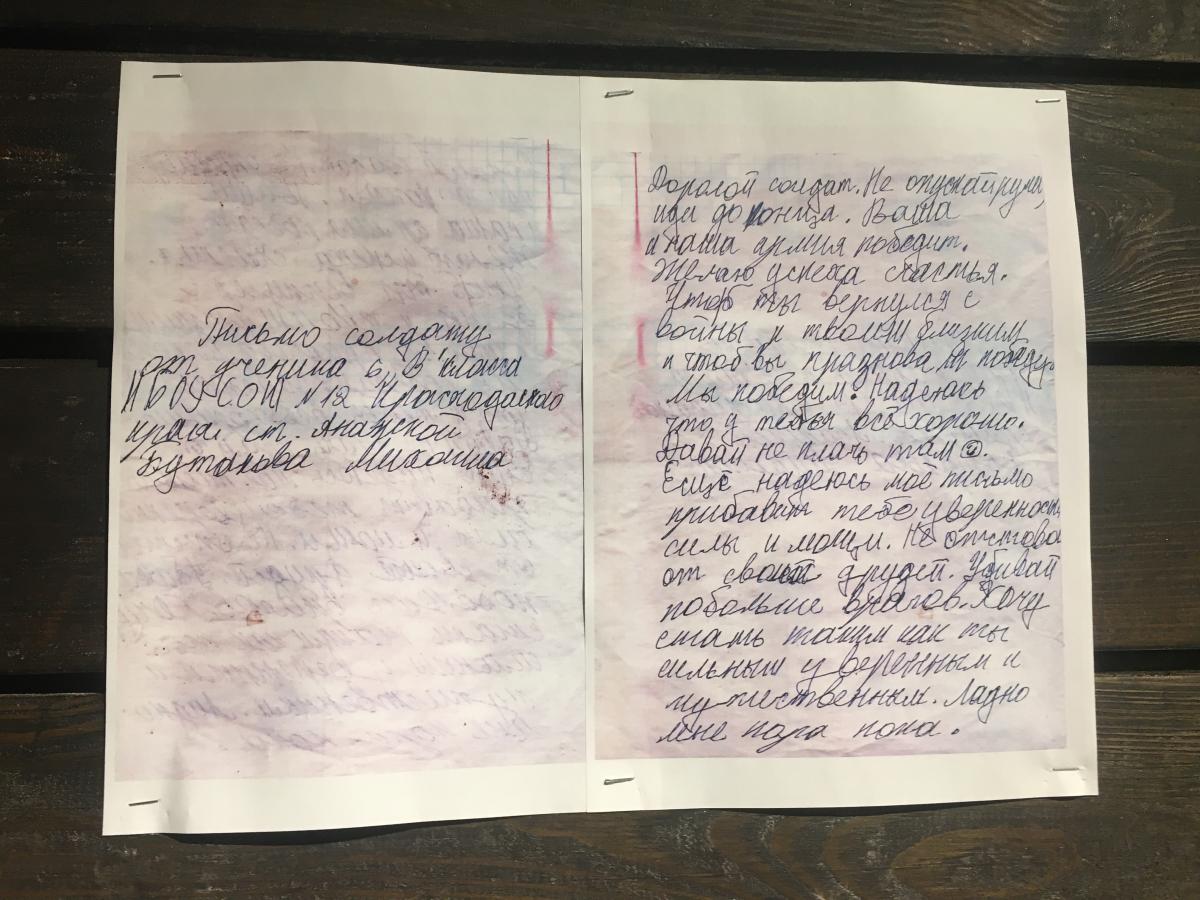 Письмо солдату
от ученика 6 „В" класса
МБОУ СОШ №12 Краснодарского
края ст. Анапской
Бутакова Михаила
Дорогой солдат. Не опускай руки,
иди до конца. Ваша
и наша армия победит.
Желаю успеха счастья.
Чтоб ты вернулся с
войны к твоим близким
и чтоб вы праздновали победу.
Мы победим. Надеюсь
что у тебья всё хорошо.
Давай не плачь там☺.
Есщё надеюсь моё письмо
прибавить тебе уверенность
силы и мощи. Не отстова
от своей друзей. Убивай
побольше врагов. Хочу
стать таким как ты
сильным уверенным и
мужественным. Ладно
мне пора пока.